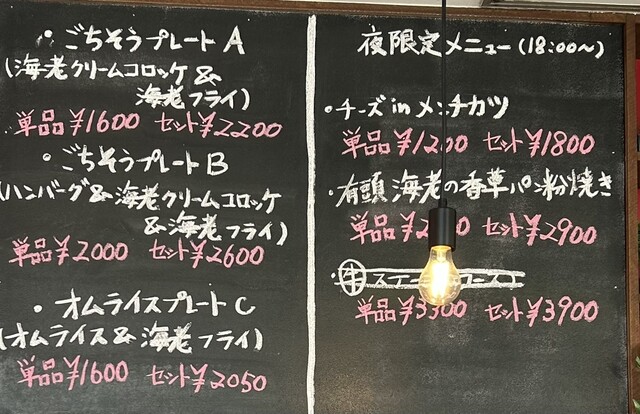 ・ごちそうプレートA
(海老クリームコロッケ&
海老フライ)
単品¥1600 セット¥2200
・ごちそうプレートB
(ハンバーグ&海老クリームコロッケ
&海老フライ)
単品¥2000 セット¥2600
・オムライスプレートC
(オムライス&海老フライ)
単品¥1600 セット¥2050
夜限定メニュー(18:00~)
・チーズinメンチカツ
単品¥1200 セット¥1800
・有頭海老の香草パン粉焼き
単品 セット¥2900
単品¥3300 セット¥3900